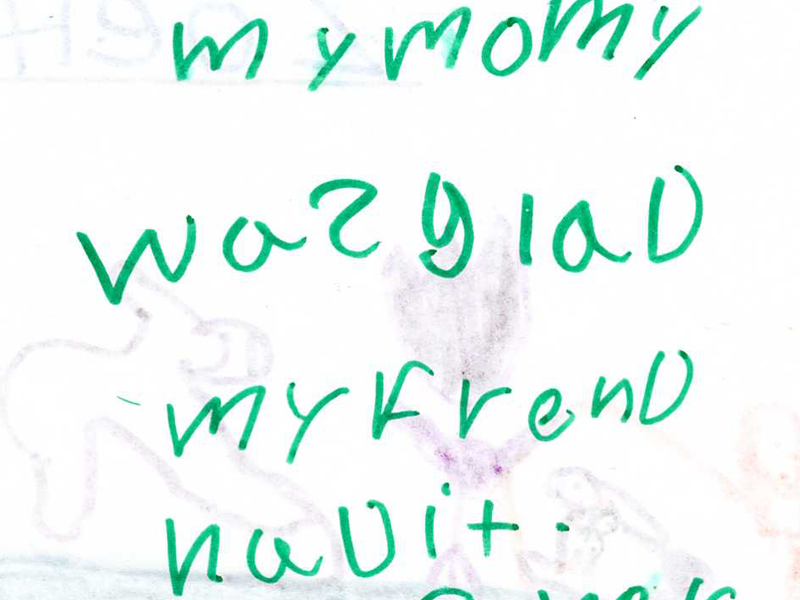 my momy
was glaD
my frenD
haD it.